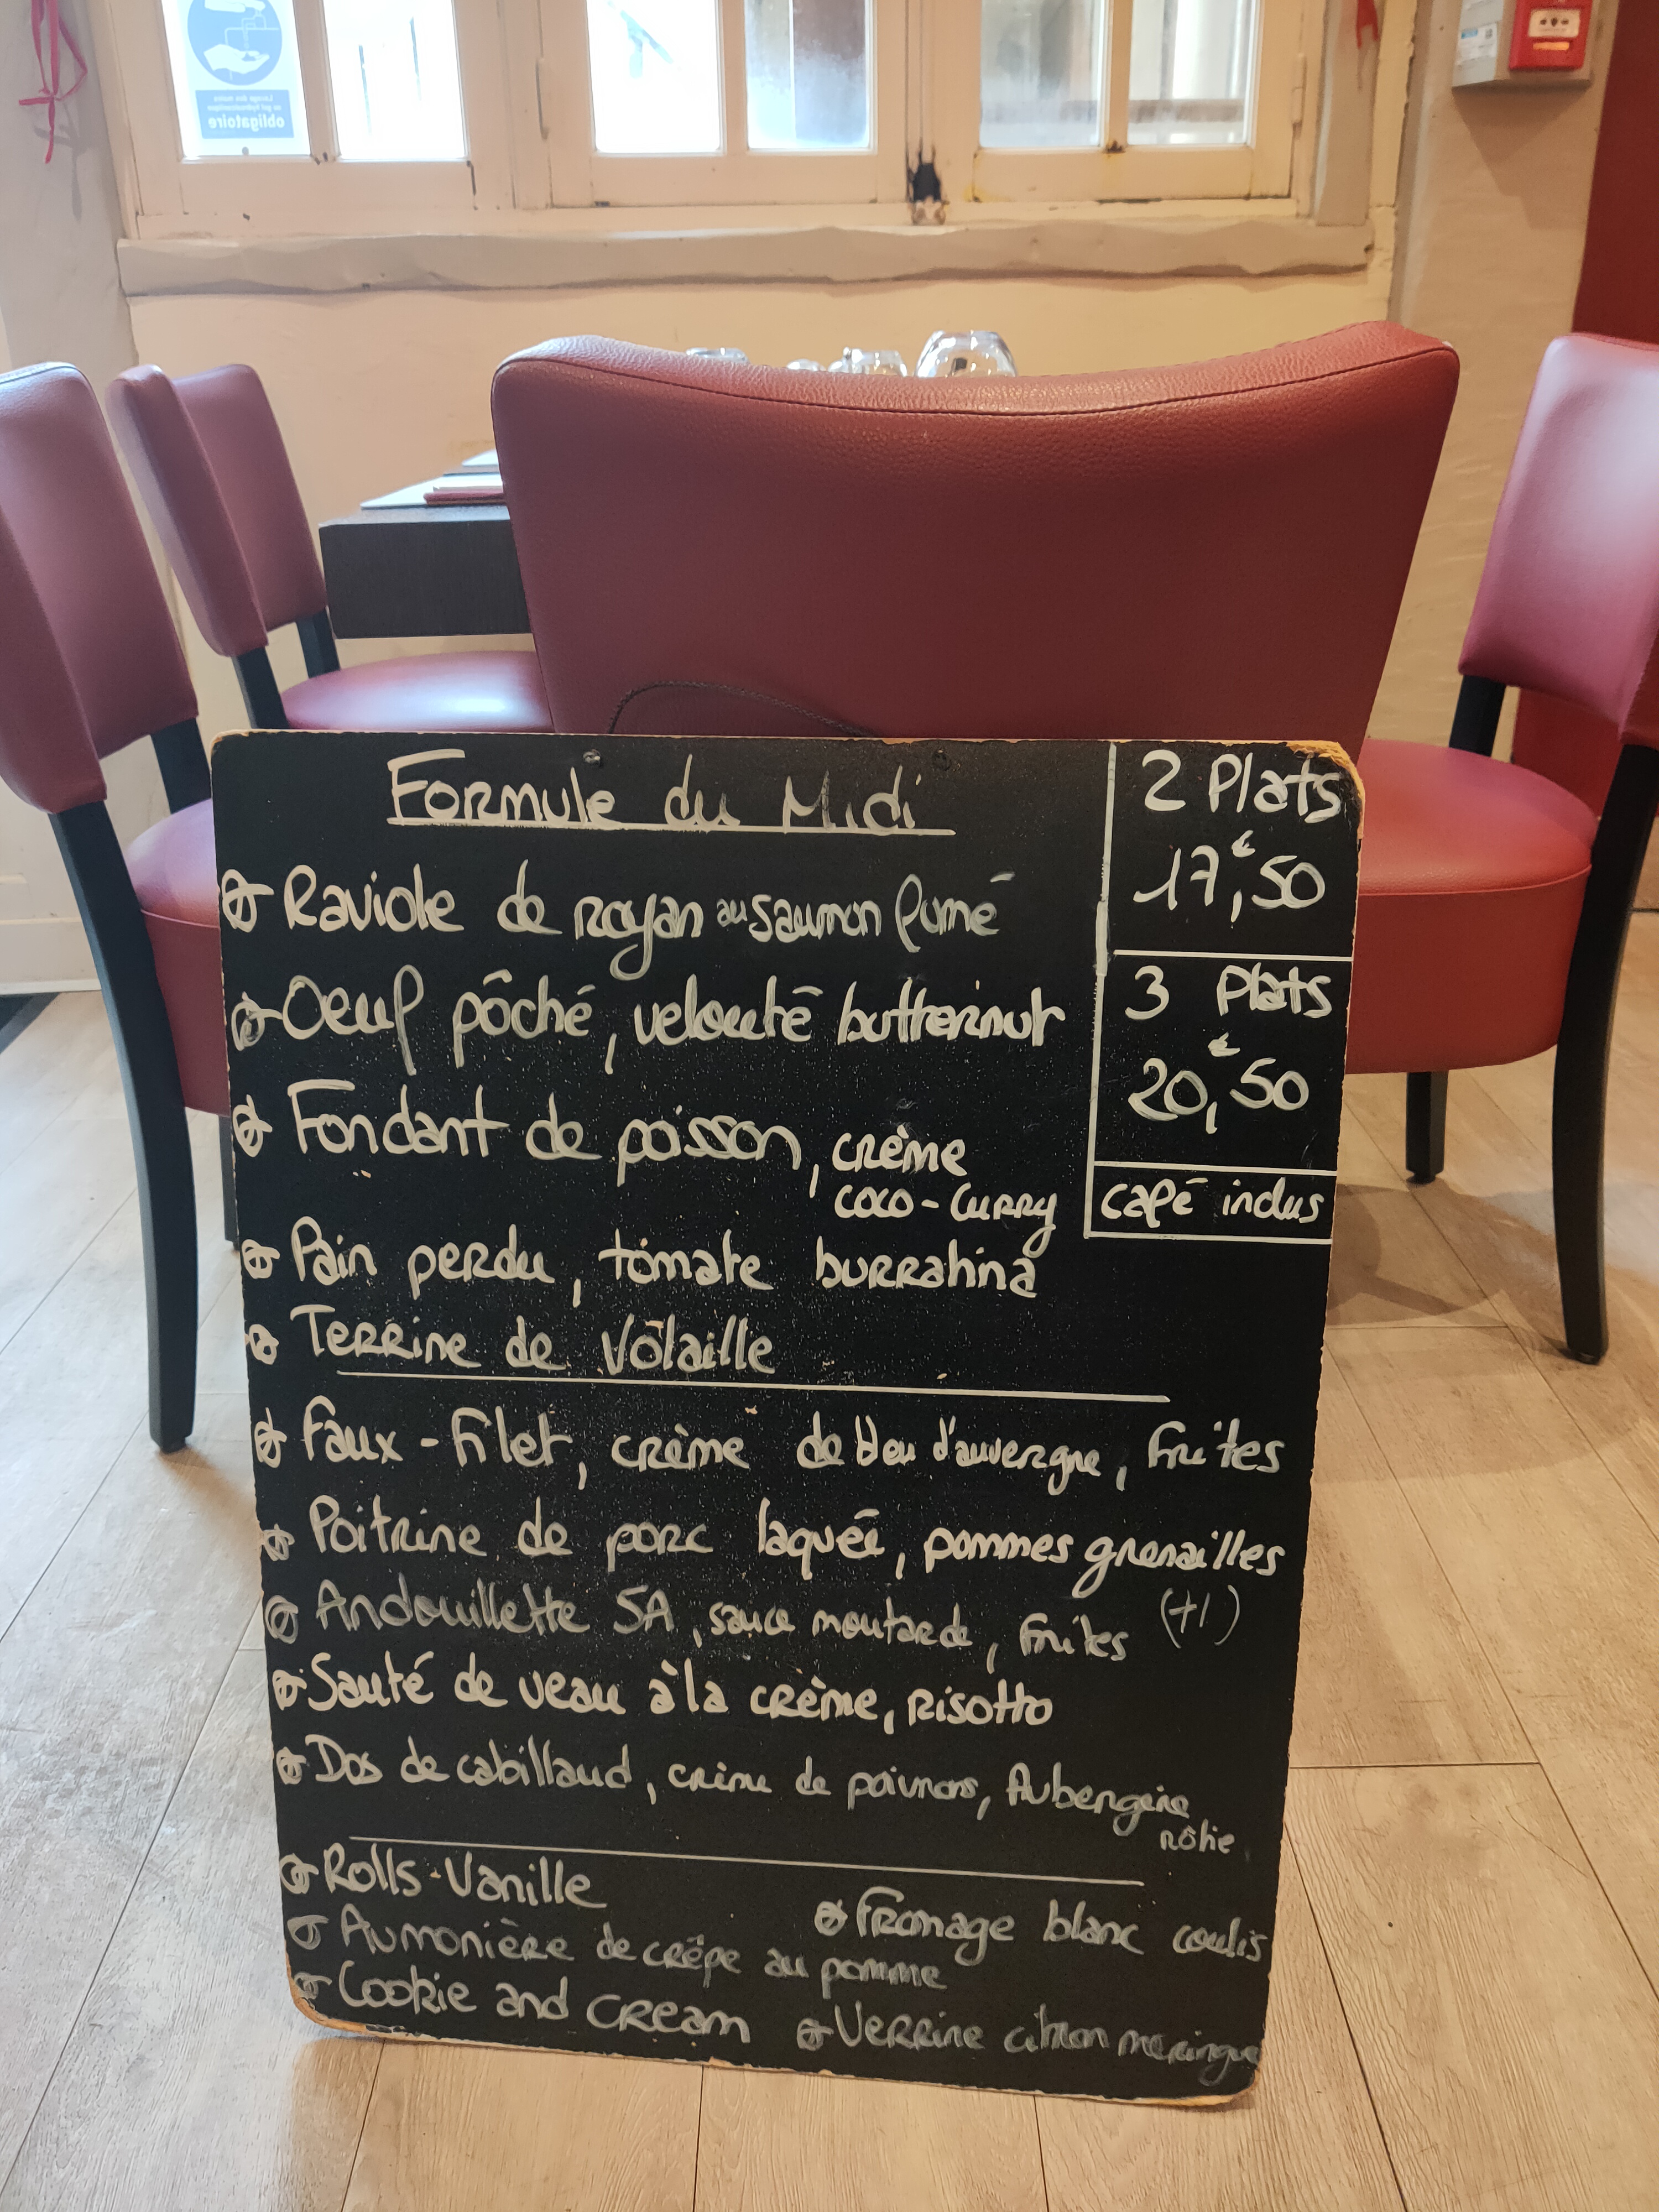 Lavage des mains
au gel hydroalcoolique
obligatoire
Formule du Midi
Raviole de royan au saumon fumé
Oeuf pôché, velouté butternut
Fondant de poisson, crème
coco-curry
Pain perdu, tomate burrahina
Terrine de Volaille
2 Plats
17,€50
3 Plats
20,€50
café inclus
Faux-Filet, crème de bleu d'auvergne, frites
Poitrine de porc laquée, pommes grenailles
Andouillette 5A, sauce moutarde, frites (+1)
Sauté de veau à la crème, risotto
Dos de cabillaud, crème de poivrons, Aubergine
rôtie
Rolls-Vanille
Fromage blanc coulis
Aumonière de crêpe au pomme
Cookie and cream
Verrine citron meringue